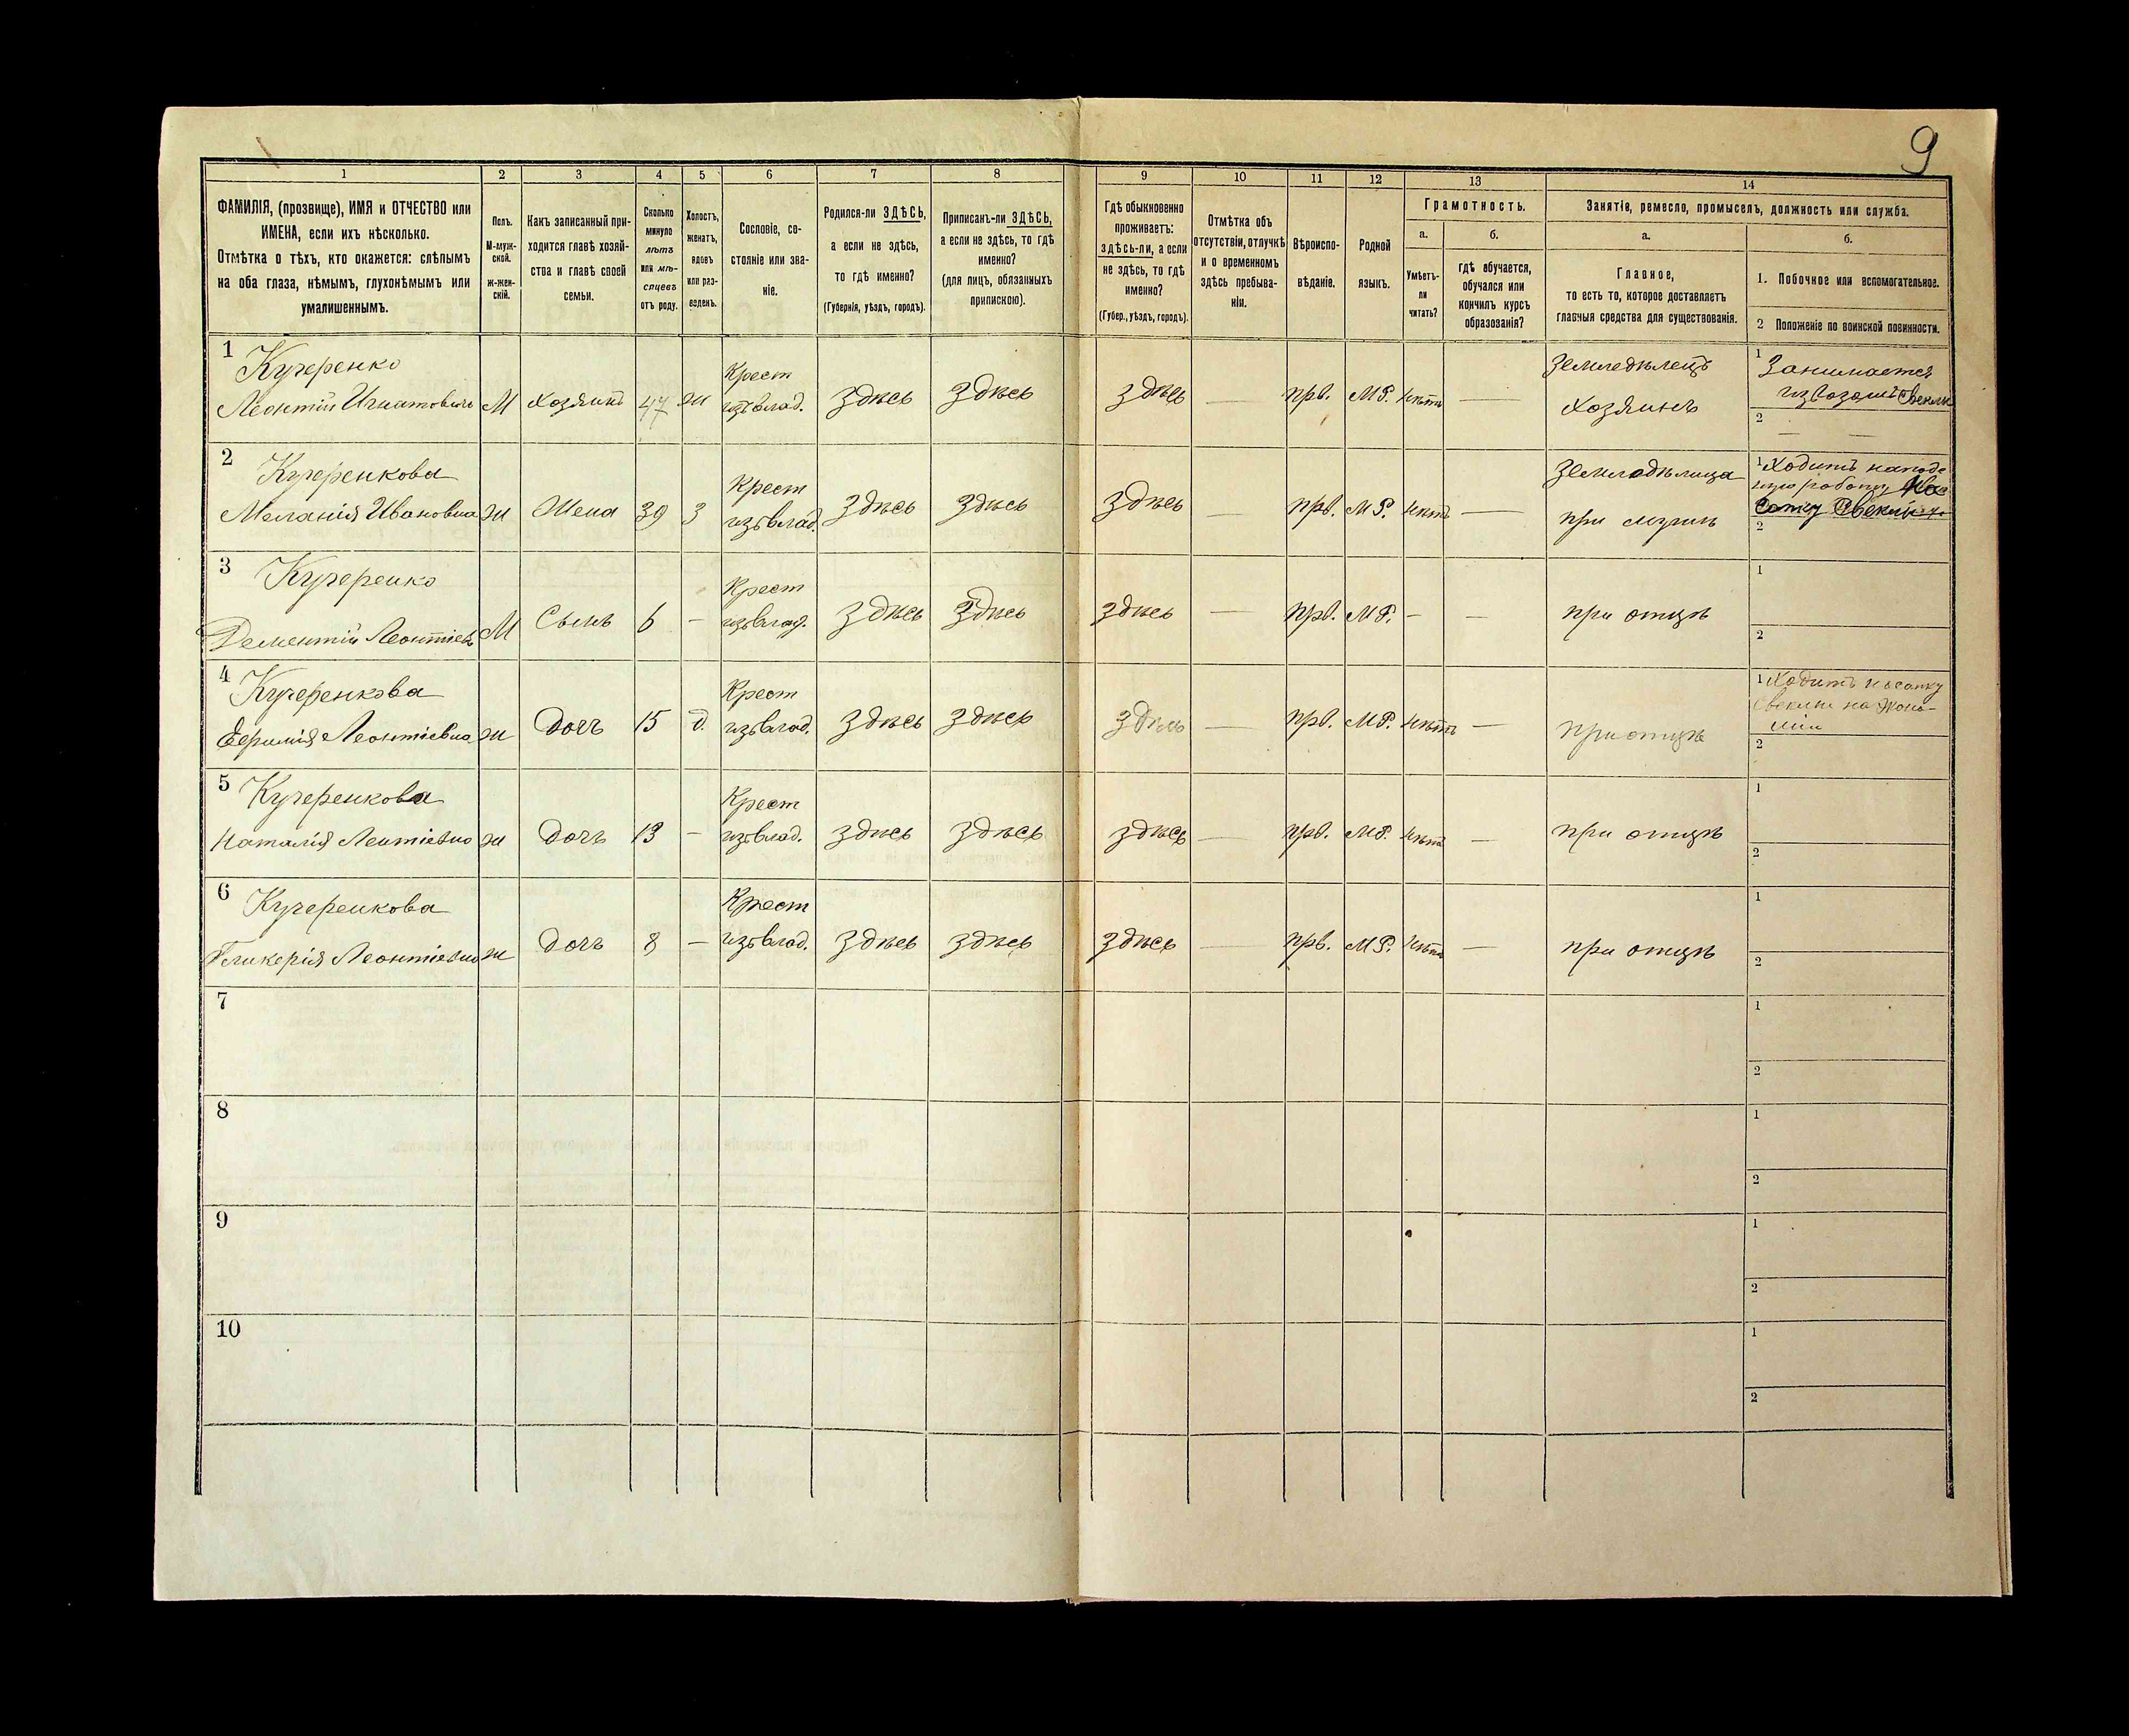 9
1 2 3 4 5 6 7 8 9 10 11 12 13 14
ФАМИЛІЯ, (прозвище), ИМЯ и ОТЧЕСТВО или
ИМЕНА, если ихъ нѣсколько.
Отмѣтка о тѣхъ, кто окажется: слѣпымъ
на оба глаза, нѣмымъ, глухонѣмымъ или
умалишеннымъ.
Полъ.
М-муж-
ской.
ж-жен-
скій.
Какъ записанный при-
ходится главѣ хозяй-
ства и главѣ своей
семьи.
Сколько
минуло
лѣтъ
или мѣ-
сяцевъ
отъ роду.
Холостъ,
женатъ,
вдовъ
или раз-
веденъ.
Сословіе, со-
стояніе или зва-
ніе.
Родился-ли ЗДѢСЬ,
а если не здѣсь,
то гдѣ именно?
(Губернія, уѣздъ, городъ).
Приписанъ-ли ЗДѢСЬ,
а если не здѣсь, то гдѣ
именно?
(для лицъ, обязанныхъ
припискою).
Гдѣ обыкновенно
проживаетъ:
здѣсь-ли, а если
не здѣсь, то гдѣ
именно?
(Губер., уѣздъ, городъ).
Отмѣтка объ
отсутствіи, отлучкѣ
и о временномъ
здѣсь пребыва-
ніи.
Вѣроиспо-
вѣданіе.
Родной
языкъ.
Грамотность.
а.
Умѣетъ-
ли
читать?
б.
гдѣ обучается,
обучался или
кончилъ курсъ
образованія?
Занятіе, ремесло, промыселъ, должность или служба.
а.
Главное,
то есть то, которое доставляетъ
главныя средства для существованія.
б.
1. Побочное или вспомогательное.
2 Положеніе по воинской повинности.
1 Кучеренко Крест Земледѣлецъ 1 Занимается
Леонтій Игнатовичъ М Хозяинъ 47 ж изъ влад. здѣсь здѣсь здѣсь прв. М Р. нѣтъ — Хозяинъ извозомъ Свеклы
2 — —
2 Кучеренкова Крест Земледѣлица 1 Ходитъ на поде
Меланія Ивановна ж Жена 39 з изъ влад. здѣсь здѣсь здѣсь — прв. М Р. нѣтъ — при мужѣ работу На
Сапку Свеклы
2
3 Кучеренко Крест 1
Дементій Леонтіев М Сынъ 6 — изъ влад. здѣсь здѣсь здѣсь — прв. М Р. — — при отцѣ
2
4 Кучеренкова Крест 1 Ходитъ на сапку
Ефимія Леонтіевна ж Дочь 15 д. изъ влад. здѣсь здѣсь здѣсь — прв. М Р. нѣтъ — при отцѣ Свеклы на Эконо-
міи
2
5 Кучеренкова Крест 1
Наталія Леонтіевна ж Дочь 13 — изъ влад. здѣсь здѣсь здѣсь — прв. М Р. нѣтъ — при отцѣ
2
6 Кучеренкова Крест 1
Гликерія Леонтіевна ж Дочь 8 — изъ влад. здѣсь здѣсь здѣсь — прв. М Р. нѣтъ — при отцѣ
2
7 1
2
8 1
2
9 1
2
10 1
2